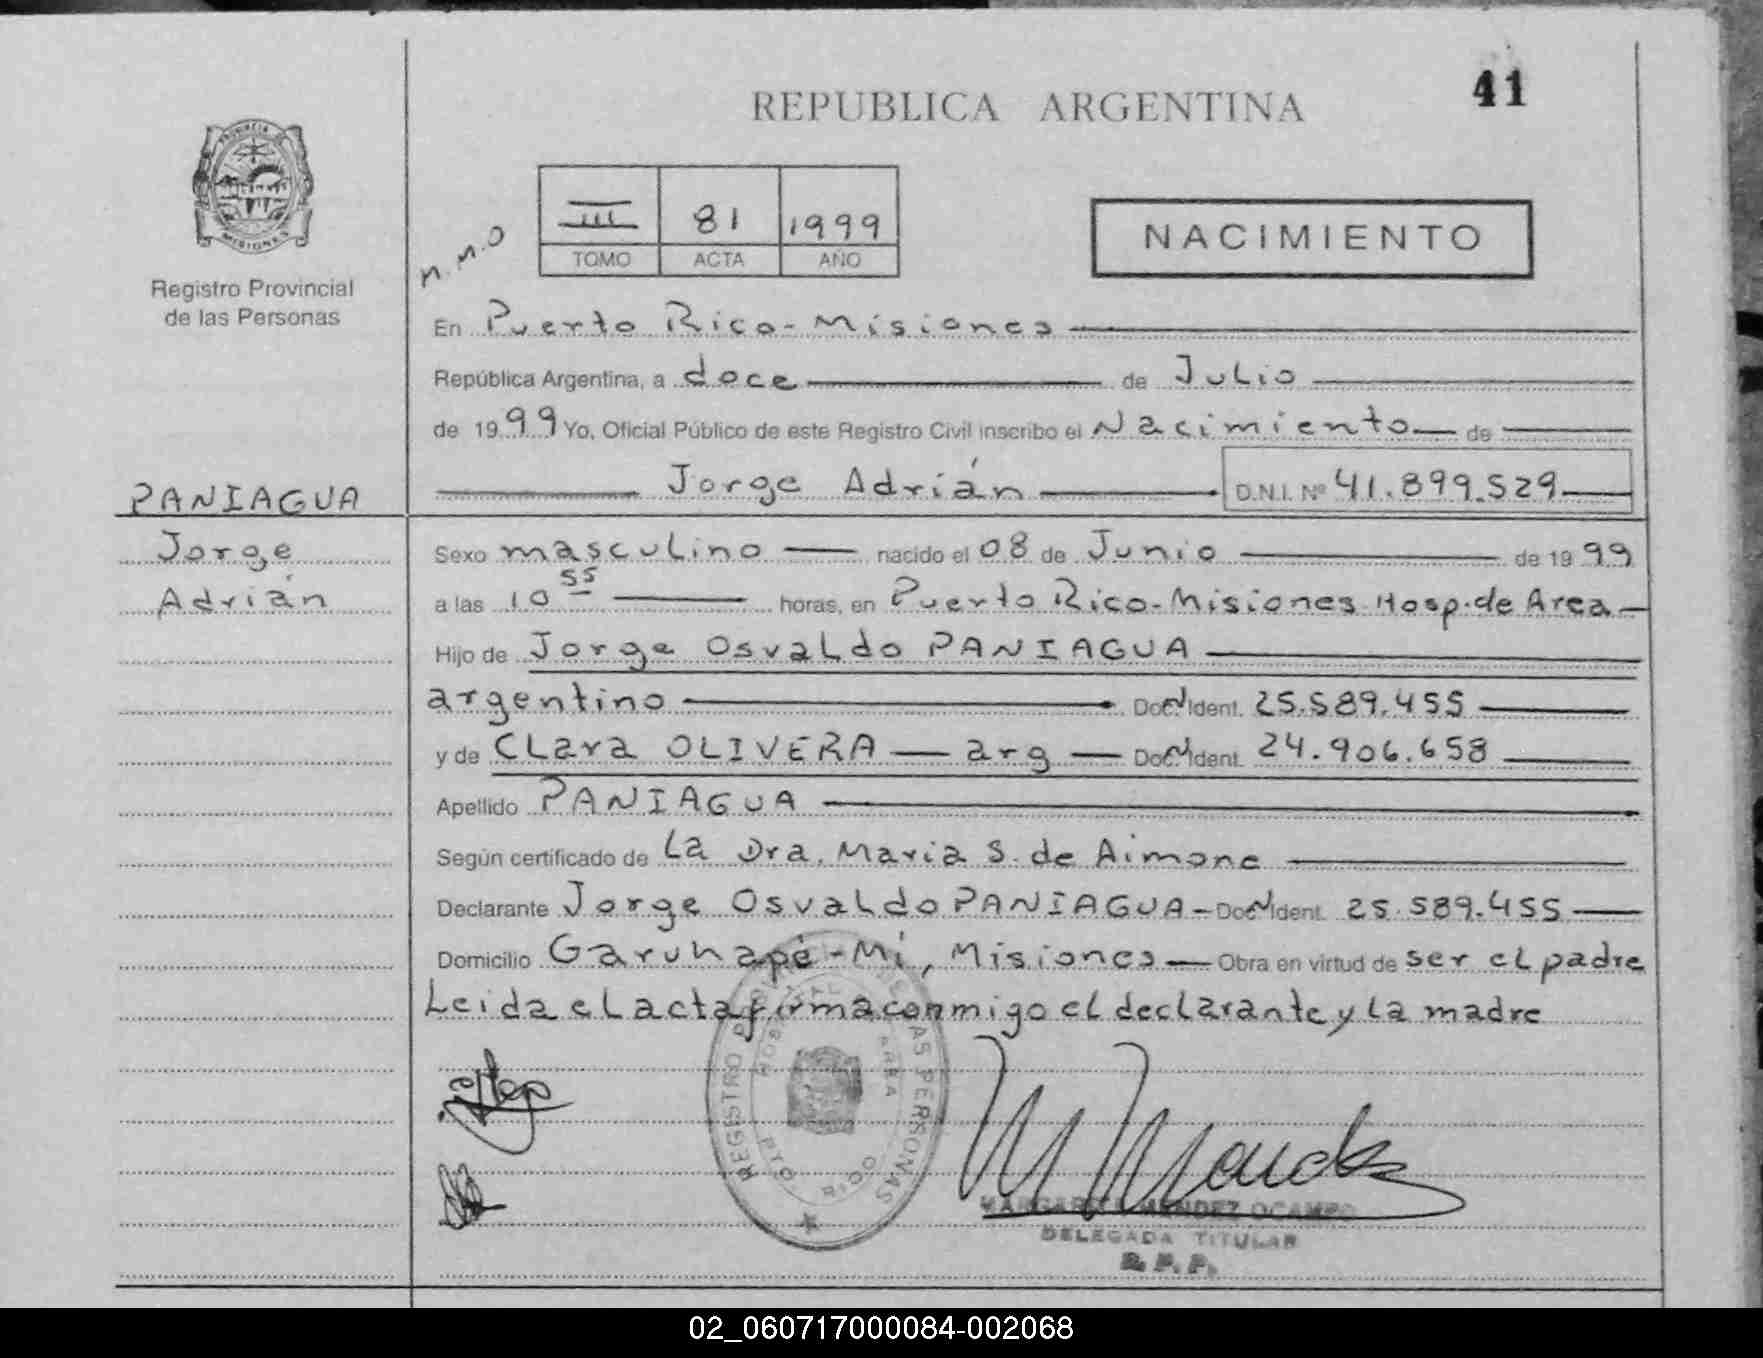 41
REPUBLICA ARGENTINA
PROVINCIA DE
MISIONES
Registro Provincial
de las Personas
n.n.o
III 81 1999
TOMO ACTA AÑO
NACIMIENTO
En Puerto Rico - Misiones
República Argentina, a doce de Julio
de 1999 Yo, Oficial Público de este Registro Civil inscribo el Nacimiento de
Jorge Adrián D.N.I. Nº 41.899.529
PANIAGUA
Jorge
Adrián
Sexo masculino nacido el 08 de Junio de 1999
a las 10 55 horas, en Puerto Rico - Misiones Hosp. de Area
Hijo de Jorge Osvaldo PANIAGUA
argentino Doc. Ident. 25.589.455
y de Clara OLIVERA arg Doc. Ident. 24.906.658
Apellido PANIAGUA
Según certificado de La Dra. Maria S. de Aimone
Declarante Jorge Osvaldo PANIAGUA - Doc. Ident. 25.589.455
Domicilio Garuhapé - Mí, Misiones Obra en virtud de ser el padre
Leida el acta firma conmigo el declarante y la madre
REGISTRO PERSONAS
MARGARITA MENDEZ OCAMPO
DELEGADA TITULAR
R. P. P.
02_060717000084-002068